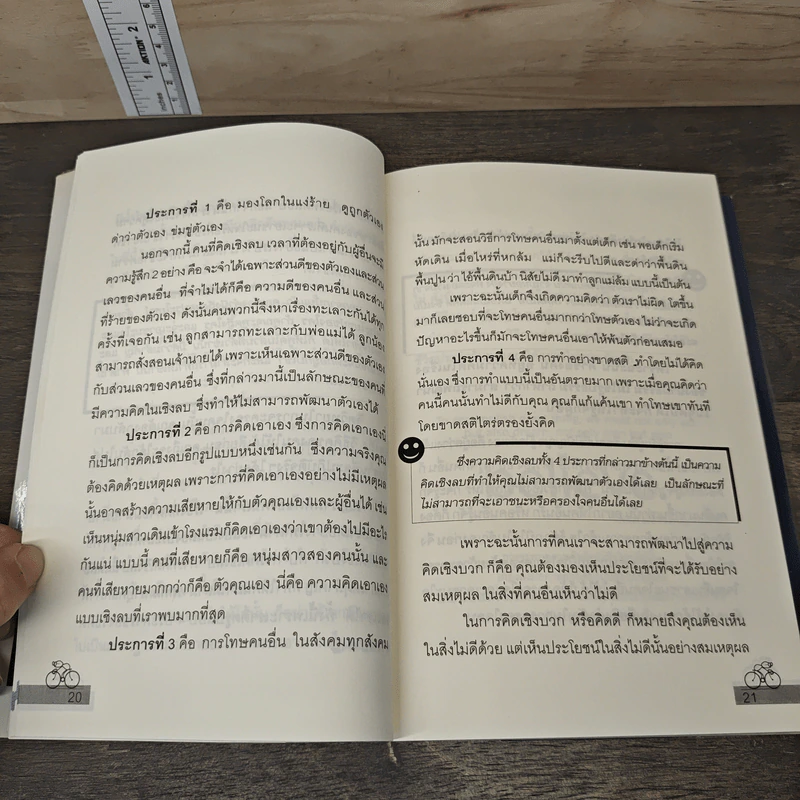 ประการที่ 1 คือ มองโลกในแง่ร้าย ดูถูกตัวเอง
ด่าว่าตัวเอง ข่มขู่ตัวเอง
นอกจากนี้ คนที่คิดเชิงลบ เวลาที่ต้องอยู่กับผู้อื่นจะมี
ความรู้สึก 2 อย่าง คือ จะจำได้เฉพาะส่วนดีของตัวเองและส่วน
เลวของคนอื่น ที่จำไม่ได้ก็คือ ความดีของคนอื่น และส่วน
ที่ร้ายของตัวเอง ดังนั้นคนพวกนี้จึงหาเรื่องทะเลาะกันได้ทุก
ครั้งที่เจอกัน เช่น ลูกสามารถทะเลาะกับพ่อแม่ได้ ลูกน้อง
สามารถสั่งสอนเจ้านายได้ เพราะเห็นเฉพาะส่วนดีของตัวเอง
กับส่วนเลวของคนอื่น ซึ่งที่กล่าวมานี้เป็นลักษณะของคนที่
มีความคิดในเชิงลบ ซึ่งทำให้ไม่สามารถพัฒนาตัวเองได้
ประการที่ 2 คือ การคิดเอาเอง ซึ่งการคิดเอาเองนี้
ก็เป็นการคิดเชิงลบอีกรูปแบบหนึ่งเช่นกัน ซึ่งความจริงคุณ
ต้องคิดด้วยเหตุผล เพราะการที่คิดเอาเองอย่างไม่มีเหตุผล
นั้นอาจสร้างความเสียหายให้กับตัวคุณเองและผู้อื่นได้ เช่น
เห็นหนุ่มสาวเดินเข้าโรงแรมก็คิดเอาเองว่าเขาต้องไปมีอะไร
กันแน่ แบบนี้ คนที่เสียหายก็คือ หนุ่มสาวสองคนนั้น และ
คนที่เสียหายมากกว่าก็คือ ตัวคุณเอง นี่คือ ความคิดเอาเอง
แบบเชิงลบที่เราพบมากที่สุด
ประการที่ 3 คือ การโทษคนอื่น ในสังคมทุกสังคม
20
นั้น มักจะสอนวิธีการโทษคนอื่นมาตั้งแต่เด็ก เช่น พอเด็กเริ่ม
หัดเดิน เมื่อไหร่ที่หกล้ม แม่ก็จะรีบไปตีและด่าว่าพื้นดิน
พื้นปูน ว่า ไอ้พื้นดินบ้า นิสัยไม่ดี มาทำลูกแม่ล้ม แบบนี้เป็นต้น
เพราะฉะนั้นเด็กจึงเกิดความคิดว่า ตัวเราไม่ผิด โตขึ้น
มาก็เลยชอบที่จะโทษคนอื่นมากกว่าโทษตัวเอง ไม่ว่าจะเกิด
ปัญหาอะไรขึ้นก็มักจะโทษคนอื่นเอาให้พ้นตัวก่อนเสมอ
ประการที่ 4 คือ การทำอย่างขาดสติ ทำโดยไม่ได้คิด
นั่นเอง ซึ่งการทำแบบนี้เป็นอันตรายมาก เพราะเมื่อคุณคิดว่า
คนนี้คนนั้นทำไม่ดีกับคุณ คุณก็แก้แค้นเขา ทำโทษเขาทันที
โดยขาดสติไตร่ตรองยั้งคิด
ซึ่งความคิดเชิงลบทั้ง 4 ประการที่กล่าวมาข้างต้นนี้ เป็นความ
คิดเชิงลบที่ทำให้คุณไม่สามารถพัฒนาตัวเองได้เลย เป็นลักษณะที่
ไม่สามารถที่จะเอาชนะหรือครองใจคนอื่นได้เลย
เพราะฉะนั้นการที่คนเราจะสามารถพัฒนาไปสู่ความ
คิดเชิงบวก ก็คือ คุณต้องมองเห็นประโยชน์ที่จะได้รับอย่าง
สมเหตุผล ในสิ่งที่คนอื่นเห็นว่าไม่ดี
ในการคิดเชิงบวก หรือคิดดี ก็หมายถึงคุณต้องเห็น
ในสิ่งไม่ดีด้วย แต่เห็นประโยชน์ในสิ่งไม่ดีนั้นอย่างสมเหตุผล
21